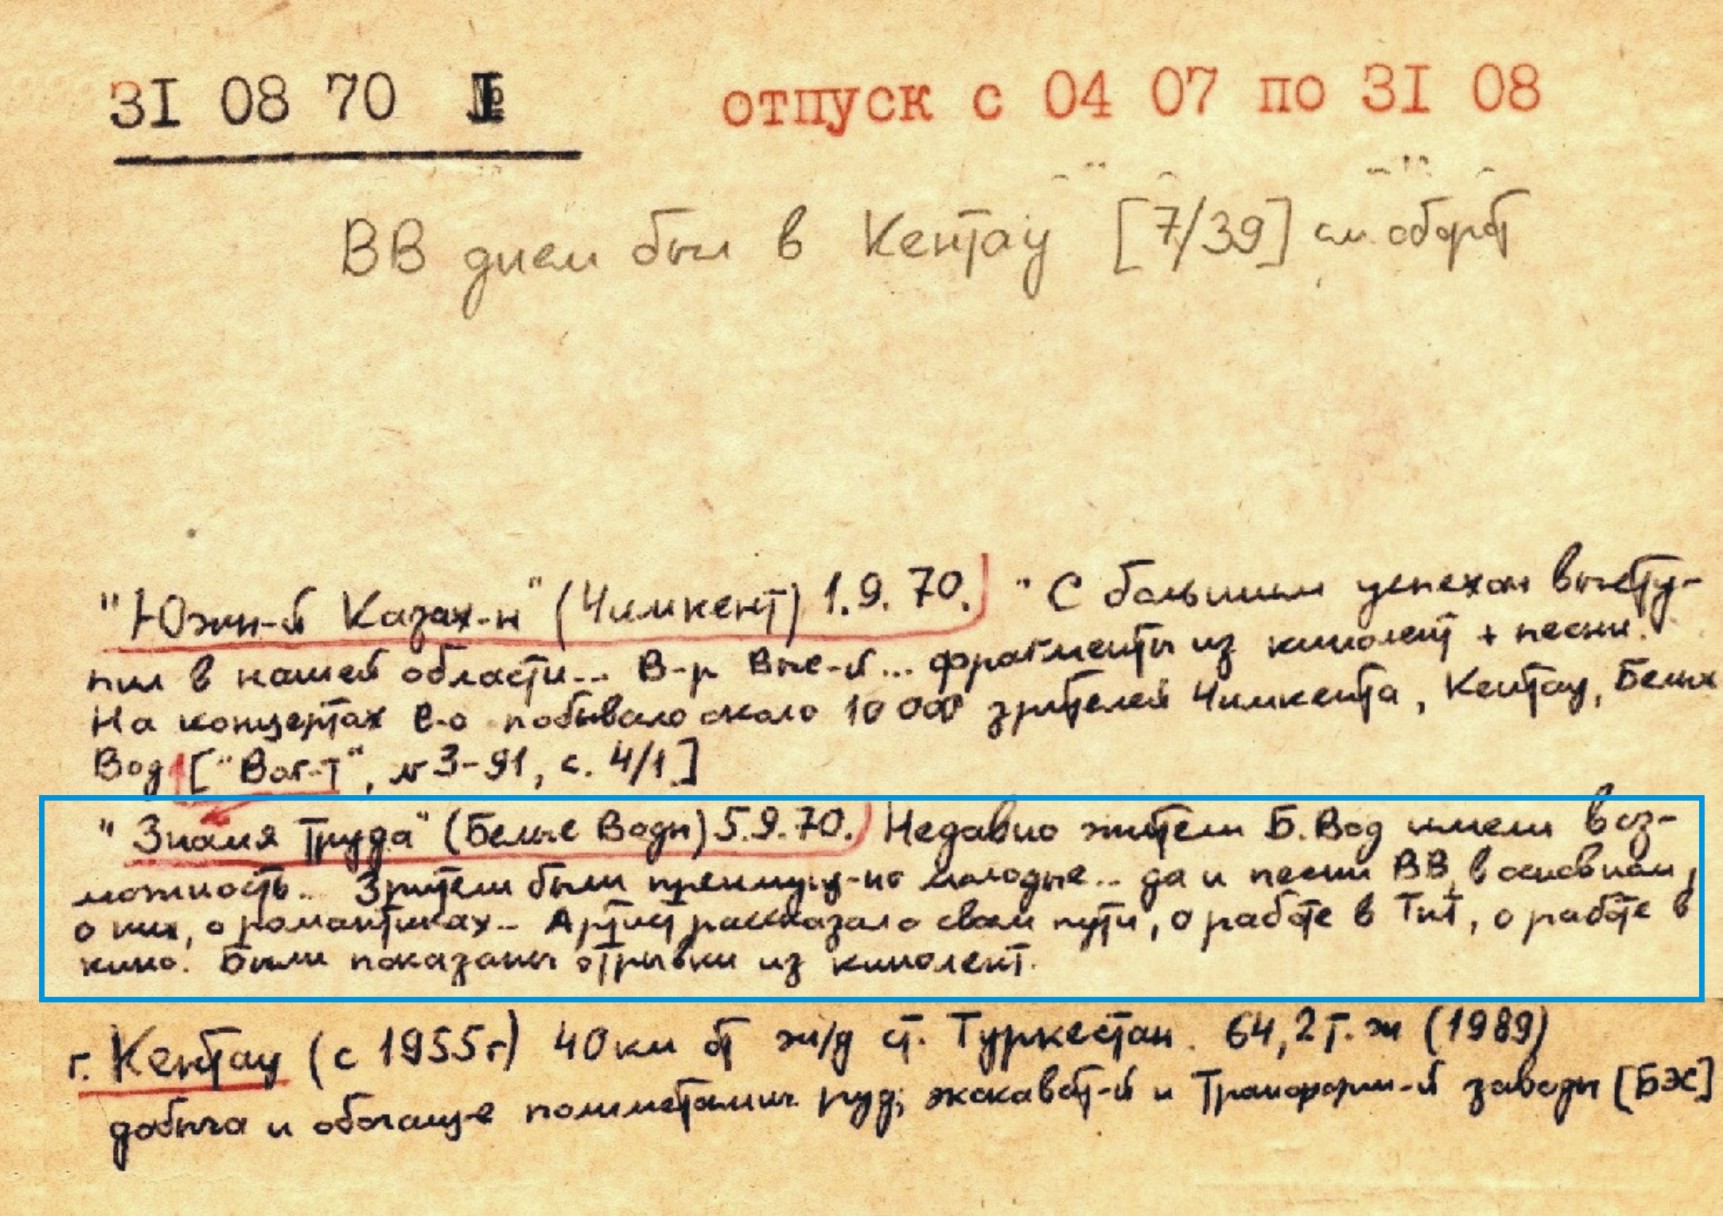 31 08 70 №
отпуск с 04 07 по 31 08
ВВ днем был в Кентау [7/39] см. оборот
"Южн-й Казах-н" (Чимкент) 1.9.70. "С большим успехом высту-
пил в нашей области... В-р Выс-й... фрагменты из кинолент + песни.
На концертах В-о побывало около 10 000 зрителей Чимкента, Кентау, Белых
Вод ["Ваг-т", №3-91, с. 4/1]
"Знамя Труда" (Белые Воды) 5.9.70. Недавно жители Б.Вод имели воз-
можность... Зрители были преимущ-но молодые... да и песни ВВ, в основном,
о них, о романтиках... Артист рассказал о своем пути, о работе в ТнТ, о работе в
кино. Были показаны отрывки из кинолент.
г. Кентау (с 1955г) 40 км от ж/д ст. Туркестан. 64,2 т.ж (1989)
добыча и обогаще-е полиметаллич. руд; экскават-й и Трансформ-й заводы [БЭС]